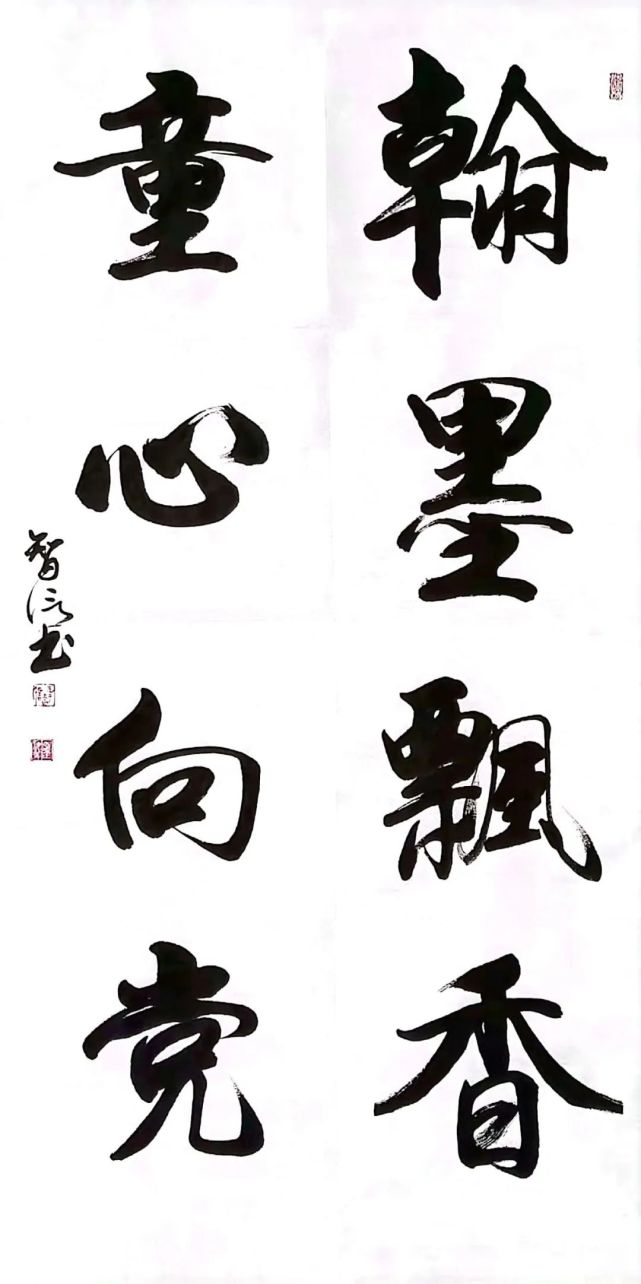 翰墨飄香
童心向党
智信书